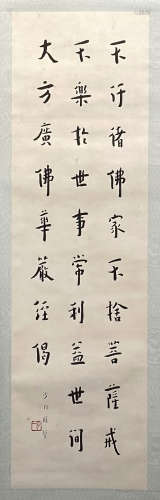 不行諸佛家不捨菩薩戒
不樂於世事常利益世間
大方廣佛華嚴經偈